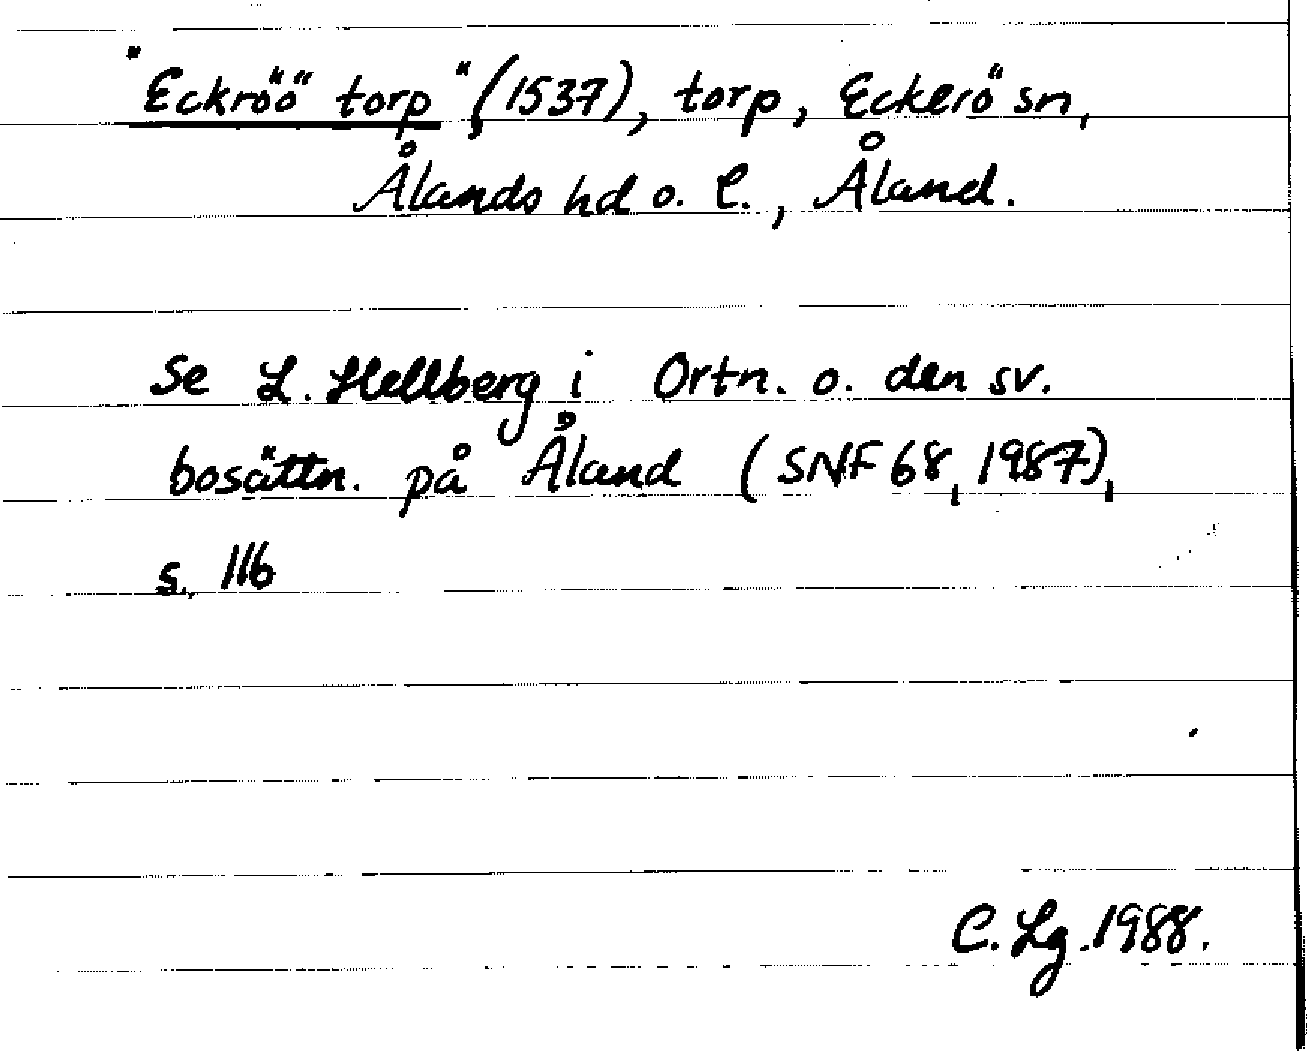 "Eckröö torp" (1537), torp, Eckerö sn,
Ålands hd o. l., Åland.
Se L. Hellberg i Ortn. o. den sv.
bosättn. på Åland (SNF 68, 1987),
s. 116
C. Lg. 1988.